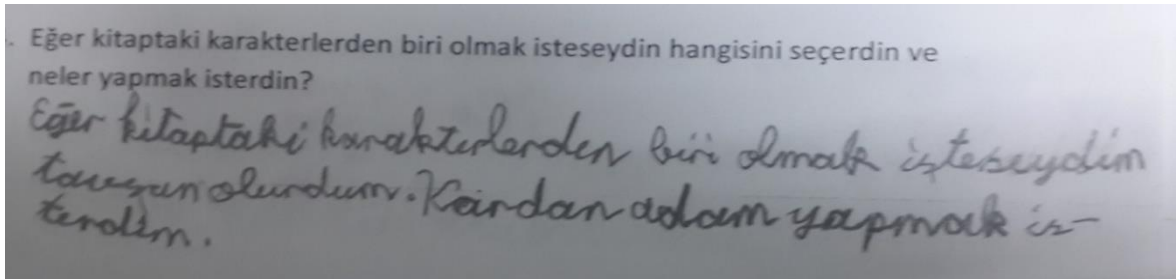 . Eğer kitaptaki karakterlerden biri olmak isteseydin hangisini seçerdin ve
neler yapmak isterdin?
Eğer kitaptaki karakterlerden biri olmak işteseydim
tavşan olurdum. Kardan adam yapmak is-
terdim.